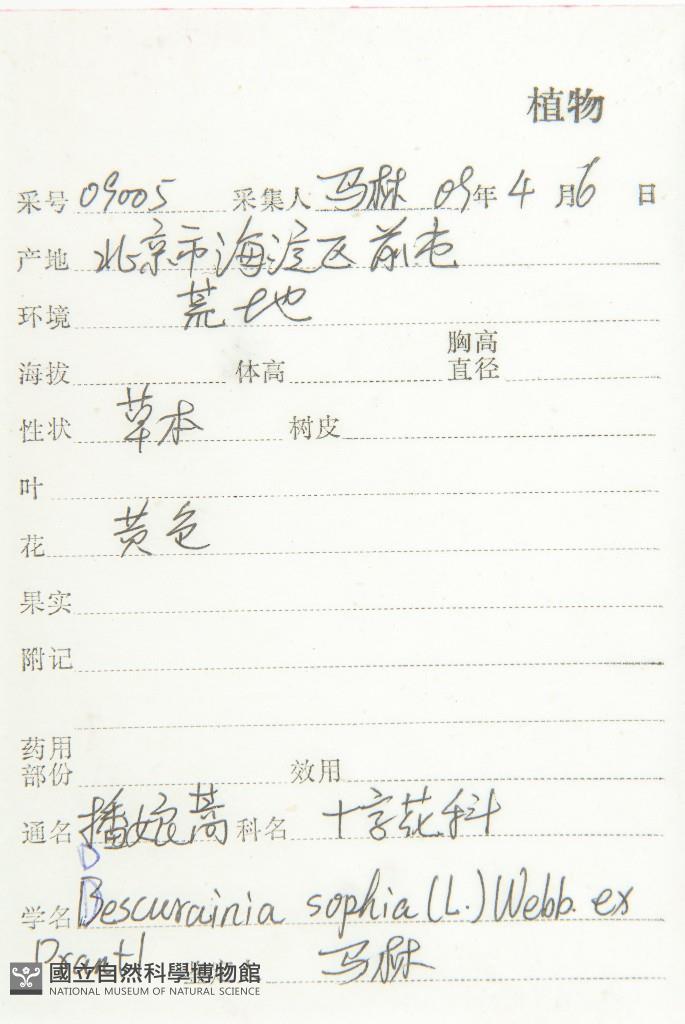 植物
采号 09005 采集人 马林 09年 4 月 6 日
产地 北京市海淀区前屯
环境 荒地
海拔 体高 胸高直径
性状 草本 树皮
叶
花 黄色
果实
附记
药用部份 效用
通名 播娘蒿 科名 十字花科
D
学名 Bescurainia sophia (L.) Webb. ex
Prantl 马林
國立自然科學博物館
NATIONAL MUSEUM OF NATURAL SCIENCE